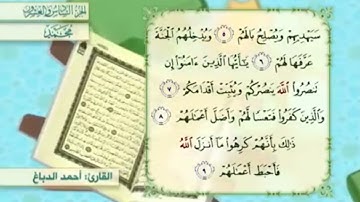 الجزء السادس والعشرون
محمد
سَيَهْدِيهِمْ وَيُصْلِحُ بَالَهُمْ ٥ وَيُدْخِلُهُمُ الْجَنَّةَ
عَرَّفَهَا لَهُمْ ٦ يَٰٓأَيُّهَا الَّذِينَ ءَامَنُوٓا۟ إِن
تَنصُرُوا۟ اللَّهَ يَنصُرْكُمْ وَيُثَبِّتْ أَقْدَامَكُمْ ٧
وَالَّذِينَ كَفَرُوا۟ فَتَعْسًا لَّهُمْ وَأَضَلَّ أَعْمَٰلَهُمْ ٨
ذَٰلِكَ بِأَنَّهُمْ كَرِهُوا۟ مَآ أَنزَلَ اللَّهُ
فَأَحْبَطَ أَعْمَٰلَهُمْ ٩
القارئ: أحمد الدباغ